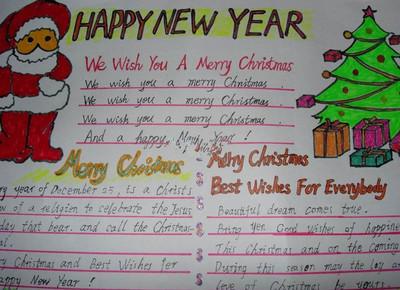 HAPPY NEW YEAR
We Wish You A Merry Christmas
We wish you a merry Christmas.
We wish you a merry Christmas.
We wish you a merry Christmas.
And a happy, Many Year!
Merry Christmas
ry year of December 25, is a Christ's
of a religion to celebrate the Jesus
day that bear. and call the Christmas-
al.
Christmas and Best Wishes for
appy New Year!
Merry Christmas
Best Wishes For Everybody
Beautiful dream comes true.
Bring you Good Wishes of happines
This Christmas and on the coming
During this season may the joy an
love of Christmas be yours